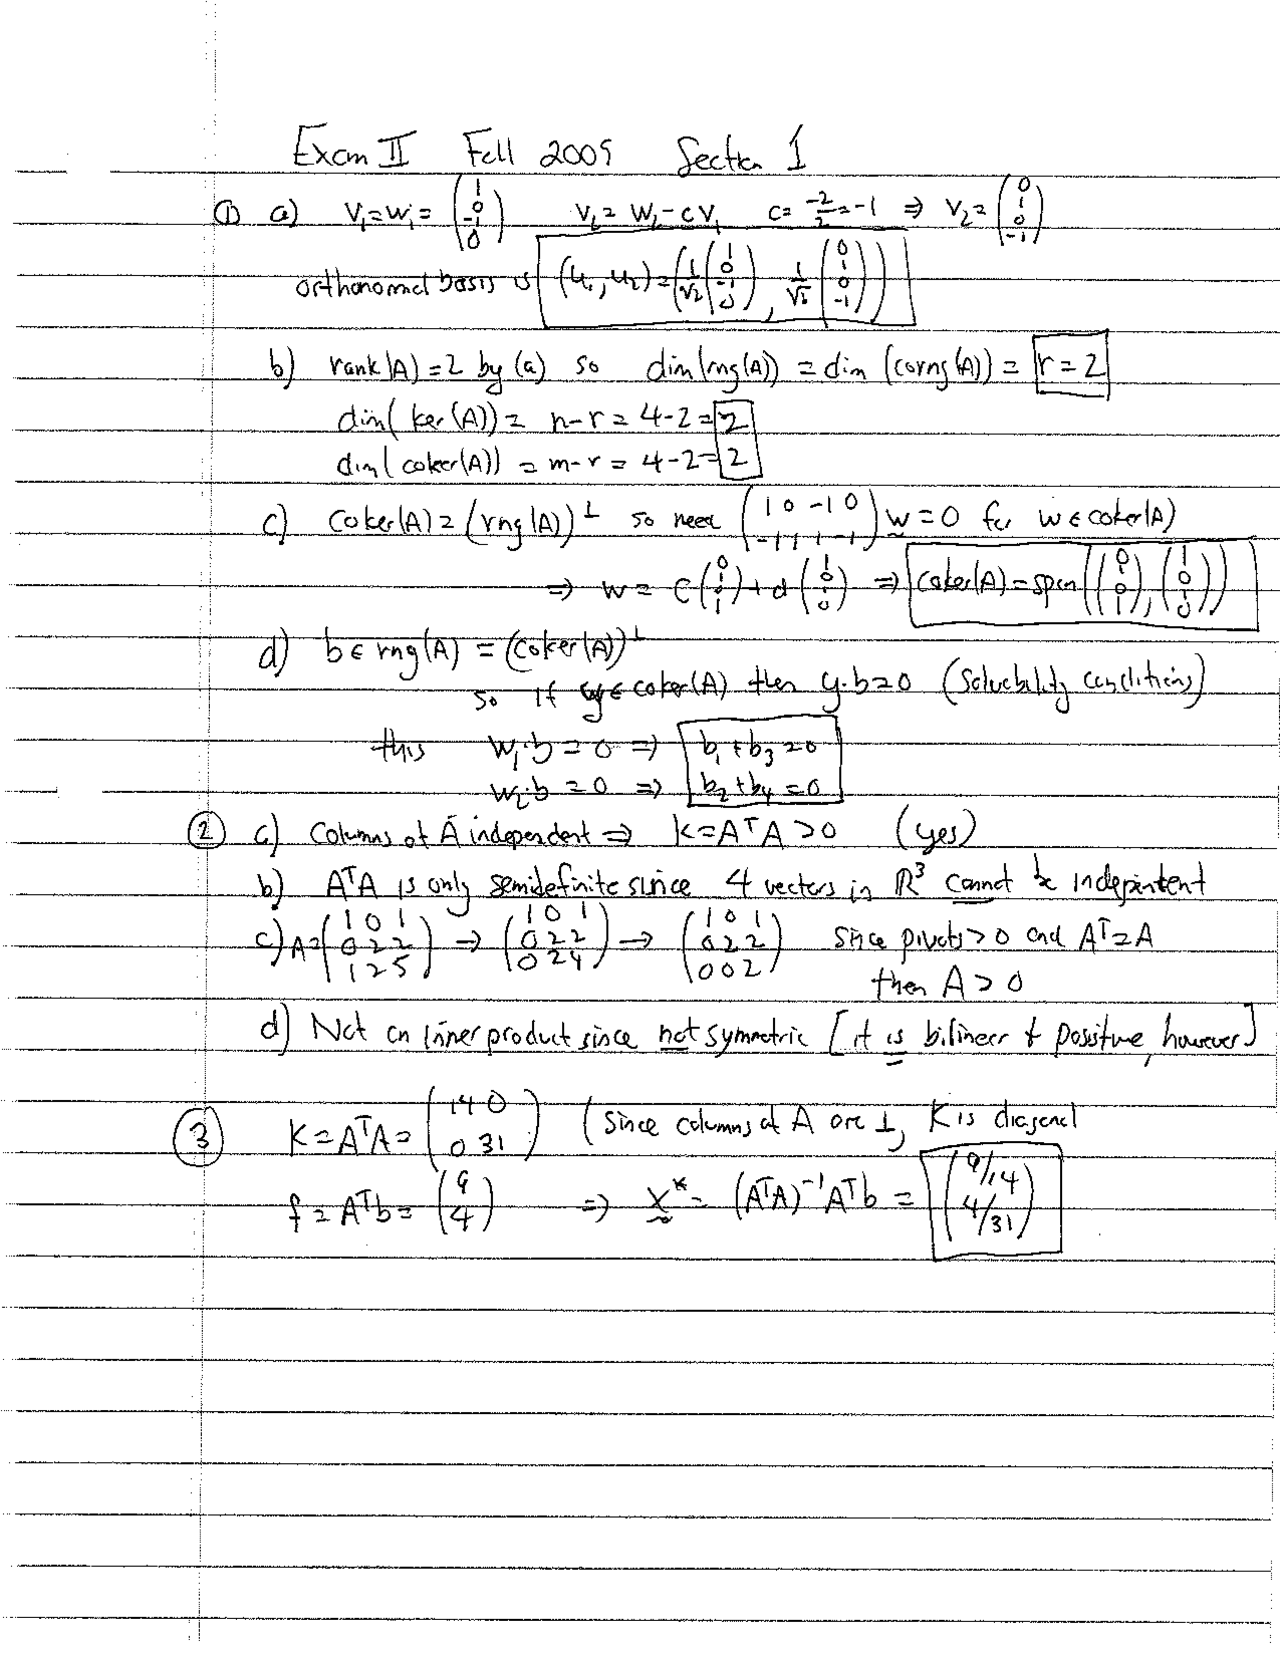 Exam II Fall 2009 Section 1
① a) v₁=w₁= (1 0 -1 0) v₂= w₂-cv₁ c= -2/2 = -1 ⇒ v₂= (0 1 0 -1)
orthonormal basis is (u₁, u₂) = (1/√2 (1 0 -1 0), 1/√2 (0 1 0 -1))
b) rank(A)=2 by (a) so dim(rng(A)) = dim (corng(A)) = r = 2
dim( ker(A)) = n-r = 4-2 = 2
dim( coker(A)) = m-r = 4-2 = 2
c) Coker(A) = (rng(A))⊥ so need (1 0 -1 0 / -1 1 1 -1) w = 0 for w ∈ coker(A)
⇒ w = c (0 1 0 1) + d (1 0 1 0) ⇒ coker(A) = span ((0 1 0 1), (1 0 1 0))
d) b ∈ rng(A) = (coker(A))⊥
so if y ∈ coker(A) then y·b=0 (Solvability conditions)
this w₁·b = 0 ⇒ b₁ + b₃ = 0
w₂·b = 0 ⇒ b₂ + b₄ = 0
② a) Columns of A independent ⇒ K=AᵀA > 0 (yes)
b) AᵀA is only semidefinite since 4 vectors in ℝ³ cannot be independent
c) A = (1 0 1 / 0 2 2 / 1 2 5) → (1 0 1 / 0 2 2 / 0 2 4) → (1 0 1 / 0 2 2 / 0 0 2) since pivots > 0 and Aᵀ=A
then A > 0
d) Not an inner product since not symmetric [it is bilinear & positive, however]
③ K = AᵀA = (14 0 / 0 31) (Since columns of A are ⊥, K is diagonal
f = Aᵀb = (9 4) ⇒ x* = (AᵀA)⁻¹Aᵀb = (9/14 4/31)